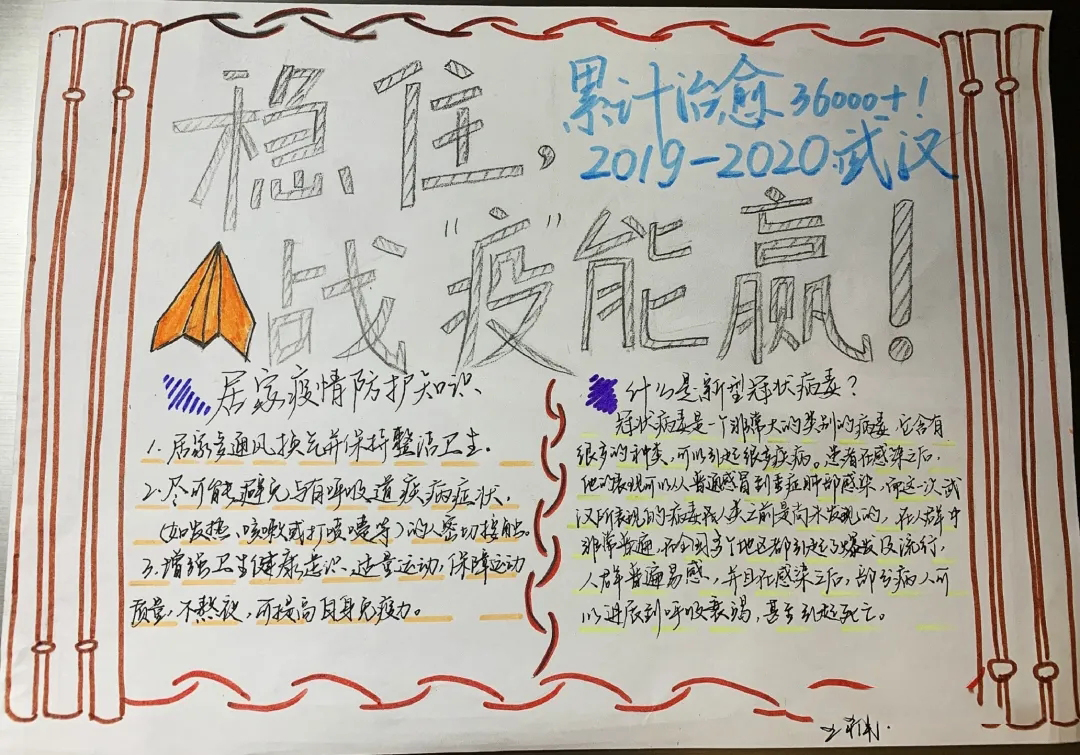 稳住,
累计治愈36000+!
2019-2020武汉
战“疫”能赢!
居家疫情防护知识
1.居家应通风换气并保持整洁卫生.
2.尽可能避免与有呼吸道疾病症状,
(如发热、咳嗽或打喷嚏等)的人密切接触.
3.增强卫生健康意识.适量运动,保障运动
质量,不熬夜,可提高自身免疫力。
什么是新型冠状病毒?
冠状病毒是一个非常大的类别的病毒.它含有
很多的种类,可以引起很多疾病。患者在感染之后,
他的表现可以从普通感冒到重症肺部感染.而这一次武
汉所表现的病毒我人类之前是尚未发现的,在人群中
非常普遍.在全国多个地区都引起了爆发及流行,
人群普遍易感,并且在感染之后,部分病人可
以进展到呼吸衰竭,甚至引起死亡。